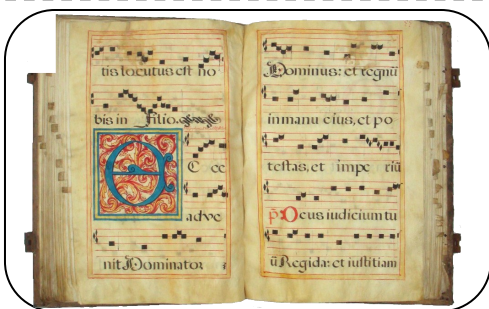 tis locutus est no
bis in Filio.
E Cce
adve
nit Dominator
Dominus: et regnū
in manu eius, et po
testas, et impe riū
p̄. Deus iudicium tu
ū Regi da: et iustitiam